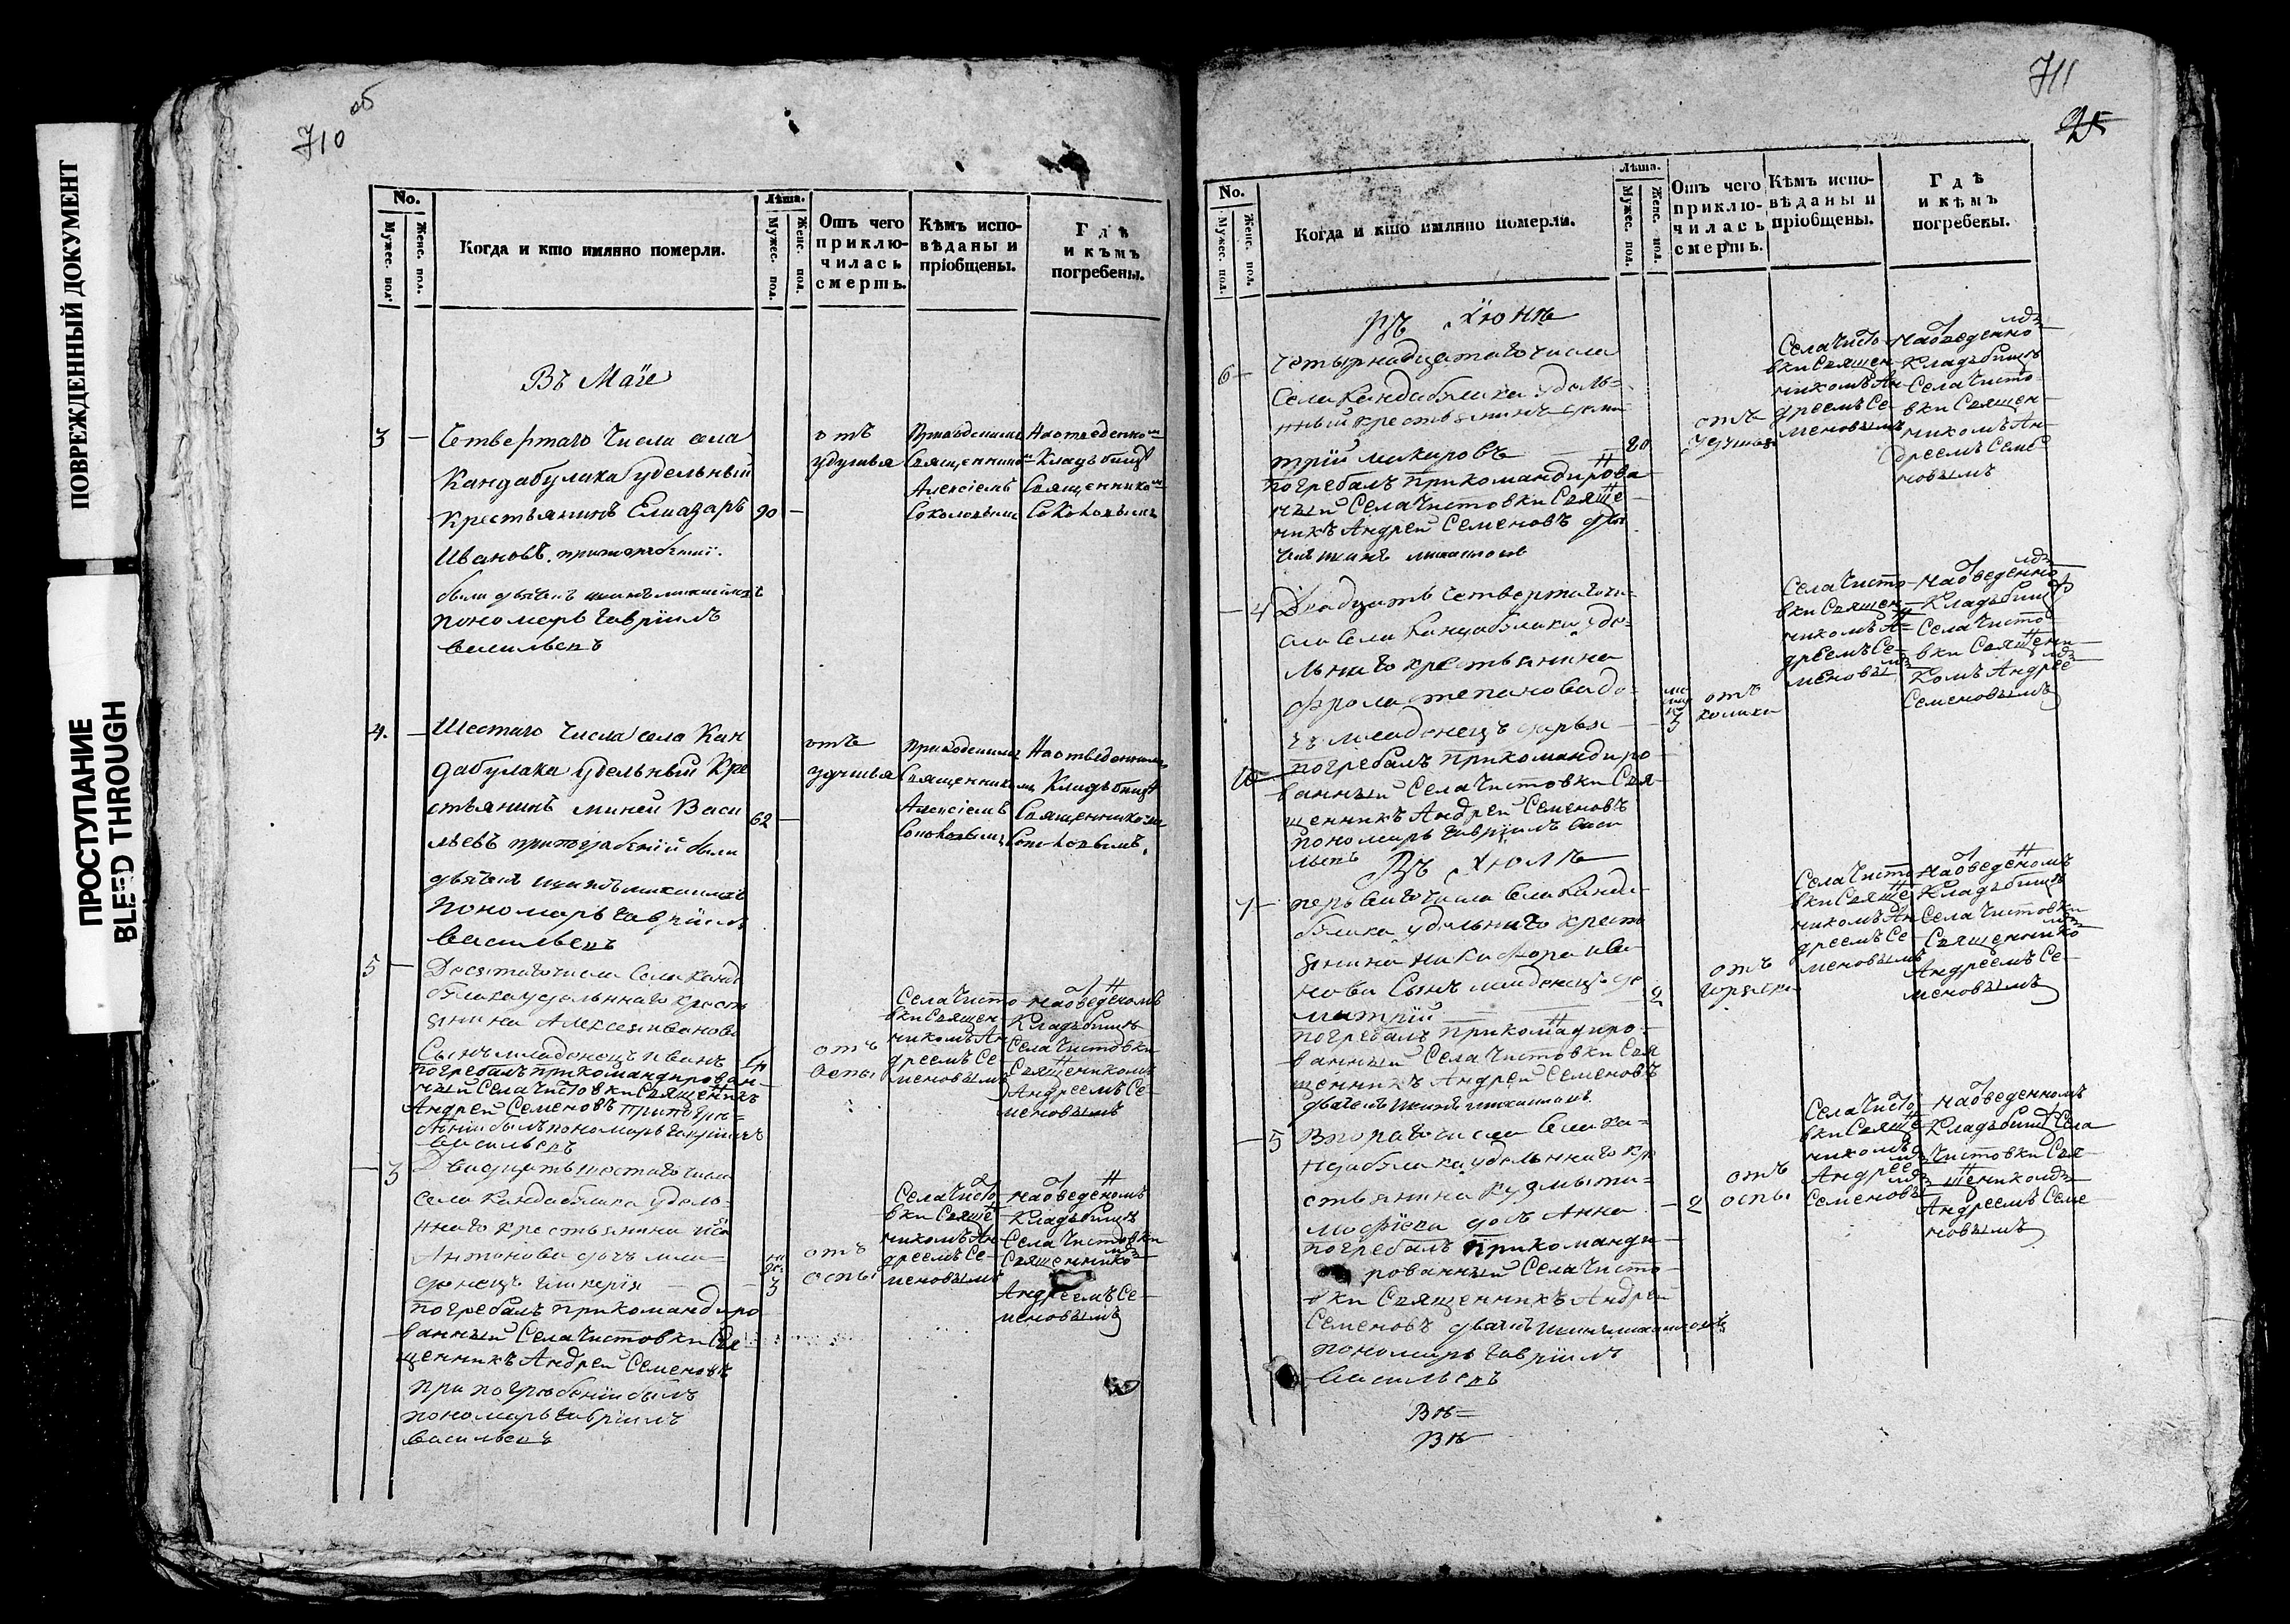 ПОВРЕЖДЕННЫЙ ДОКУМЕНТ
ПРОСТУПАНИЕ
BLEED THROUGH
710 об
No.
Мужес. пол.
Женс. пол.
Когда и кто имянно померли.
Лѣта.
Мужес. пол.
Женс. пол.
Отъ чего
приклю-
чилась
смерть.
Кѣмъ испо-
вѣданы и
пріобщены.
Гдѣ
и кѣмъ
погребены.
Въ Маіе
3 —
Четвертаго числа села
Кандабулака удельный
Крестьянинъ Елиазаръ
Ивановъ.
90 —
отъ
удушья
Священником
Алексіемъ
Соколовым
На отведенном
Кладъбищѣ
Священником
Соколовымъ
пономарь Гавріилъ
Васильевъ
4. —
Шестаго числа села Кан
дабулака удельный Кре
стьянинъ Миней Васи
льевъ при погребеніи были
62 —
отъ
удушья
Священником
Алексіемъ
На отведенном
Кладъбищѣ
Священником
пономарь Гавріилъ
Васильевъ
5 —
Десятаго числа Села Канда
булака удельннаго кресть
янина Алексея Иванова
Сынъ младенецъ Иванъ
4
погребалъ прикомандирован-
ный Села Чистовки Священикъ
Андрей Семеновъ при погре-
беніи былъ пономарь Гавріилъ
Васильевъ
отъ
оспы
Села Чисто
вки Священ
никомъ Ан
дреемъ Се
меновымъ
На отведеномъ
Кладъбищѣ
Села Чистовки
Священикомъ
Андреемъ Се-
меновымъ
— 3
Двадцать шестаго числа
села Кандабулака удель-
ннаго крестьянина
Антонова дочь мла-
денецъ Гликерія
3
погребалъ прикомандиро
ванный Села Чистовки Свя
щенникъ Андрей Семеновъ
при погребеніи былъ
пономарь Гавріилъ
Васильевъ
отъ
оспы
Села Чисто
вки Свяще
никомъ Ан
дреемъ Се
меновымъ
На отведеномъ
Кладъбищѣ
Села Чистовки
Священнико
Андреемъ Се-
меновымъ
711
25
No.
Мужес. пол.
Женс. пол.
Когда и кто имянно померли.
Лѣта.
Мужес. пол.
Женс. пол.
Отъ чего
приклю-
чилась
смерть.
Кѣмъ испо-
вѣданы и
пріобщены.
Гдѣ
и кѣмъ
погребены.
Въ Іюнѣ
6 —
Четырнадцатаго числа
Села Кандабулака удель-
нный крестьянинъ Дми
трій Макаровъ
20
погребалъ прикомандирова
нный Села Чистовки Свяще
никъ Андрей Семеновъ
отъ
Села Чисто
вки Священ
никомъ Ан
дреемъ Се
меновымъ
На отведенно
Кладъбищѣ
Села Чисто
вки Священ-
никомъ Ан-
дреемъ Семе
новымъ
— 4
Двадцать четвертаго чи-
сла Села Кандабулака уде-
льнаго крестьянина
Фрола Степанова до-
чь младенецъ Дарья
3
погребалъ прикомандиро
ванный Села Чистовки Свя-
щенникъ Андрей Семеновъ
пономарь Гавріилъ Васи
льевъ
отъ
колики
Села Чисто
вки Священ
никомъ Ан
дреемъ Се-
меновы
На отведенно
Кладъбищѣ
Села Чисто
вки Священи
комъ Андрее
Семеновымъ
Въ Іюлѣ
7 —
перваго числа Села Канда-
булака удельнаго кресть
янина Никифора Ива
нова Сынъ младенецъ Ди
митрій
2
погребалъ прикомадиро-
ванный Села Чистовки Свя
щенникъ Андрей Семеновъ
отъ
горячки
Села Чисто
вки Свяще
никомъ Ан
дреемъ Се
меновымъ
На отведеномъ
Кладъбищѣ
Села Чистовки
Священнико
Андреемъ Се-
меновымъ
— 5
Втораго числа Села Ка-
ндабулака удельннаго кр
естьянина Кузмы Ти-
мофеева дочь Анна
— 2
погребалъ прикоманди-
рованный Села Чисто-
вки Священникъ Андрей
Семеновъ
пономарь Гавріилъ
Васильевъ
отъ
оспы
Села Чисто
вки Свяще
никомъ
Андрее
Семеновы
На отведенномъ
Кладъбищѣ Села
Чистовки Свя-
щеником
Андреемъ Семе
новымъ
Въ=
Въ